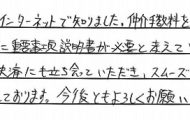 インターネットで知りました。仲介手数料を
に重要事項説明書が必要と考えて
決済にも立ち会っていただき、スムーズ
ております。今後ともよろしくお願い